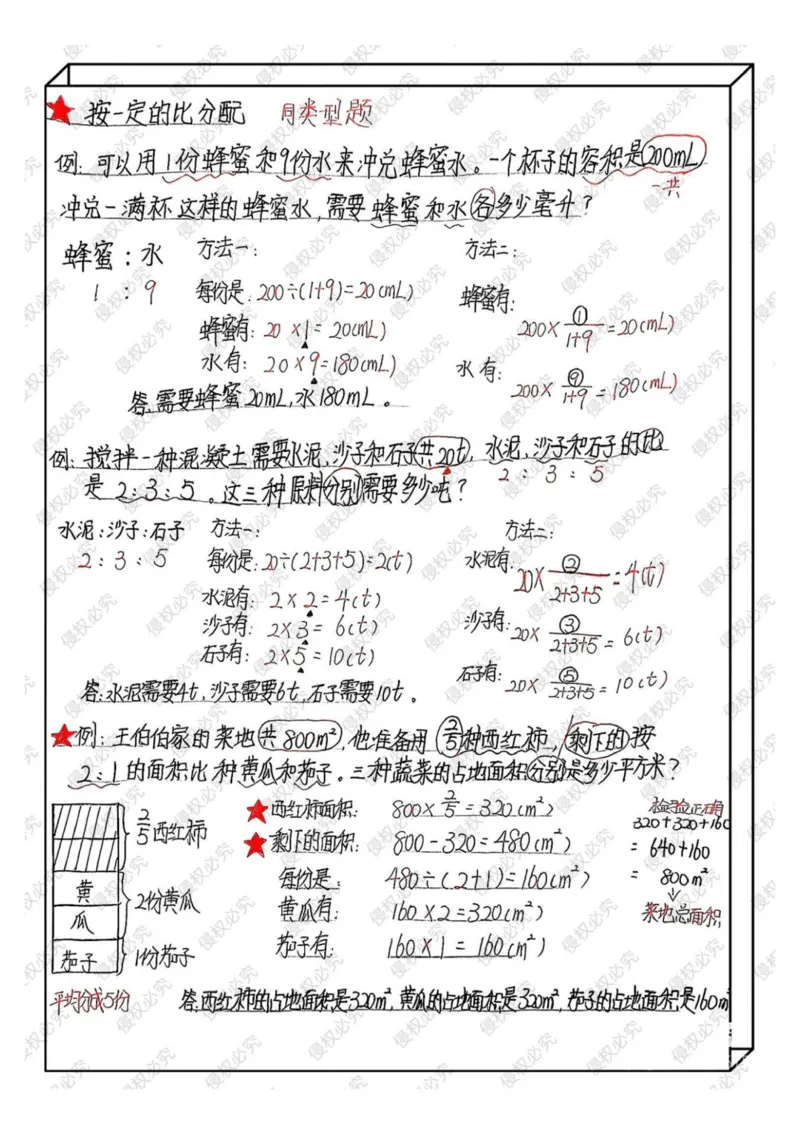 ★ 按一定的比分配 同类型题
例:可以用1份蜂蜜和9份水来冲兑蜂蜜水。一个杯子的容积是200mL
一共
冲兑一满杯这样的蜂蜜水,需要蜂蜜和水各多少毫升?
蜂蜜:水 方法一: 方法二:
1 : 9 每份是:200÷(1+9)=20(mL) 蜂蜜有: 200×①/1+9=20(mL)
蜂蜜有: 20×1=20(mL)
水有: 20×9=180(mL) 水有: 200×⑨/1+9=180(mL)
答:需要蜂蜜20mL,水180mL。
例:搅拌一种混凝土需要水泥,沙子和石子共20t,水泥,沙子和石子的比
2 : 3 : 5
是2:3:5。这三种原料分别需要多少吨?
水泥:沙子:石子 方法一: 方法二:
2 : 3 : 5 每份是:20÷(2+3+5)=2(t) 水泥有: 20×②/2+3+5=4(t)
水泥有: 2×2=4(t)
沙子有: 2×3=6(t) 沙子有: 20×③/2+3+5=6(t)
石子有: 2×5=10(t) 石子有: 20×⑤/2+3+5=10(t)
答:水泥需要4t,沙子需要6t,石子需要10t。
★例:王伯伯家的菜地共800m²,他准备用2/5种西红柿,剩下的按
2:1的面积比种黄瓜和茄子。三种蔬菜的占地面积分别是多少平方米?
2/5西红柿 ★西红柿面积: 800×2/5=320(m²) 检验正确
320+320+160
★剩下的面积: 800-320=480(m²) =640+160
黄瓜 2份黄瓜 每份是: 480÷(2+1)=160(m²) =800m²
黄瓜有: 160×2=320(m²) 菜地总面积
茄子 1份茄子 茄子有: 160×1=160(m²)
平均分成5份 答:西红柿的占地面积是320m²,黄瓜的占地面积是320m²,茄子的占地面积是160m²
侵权必究